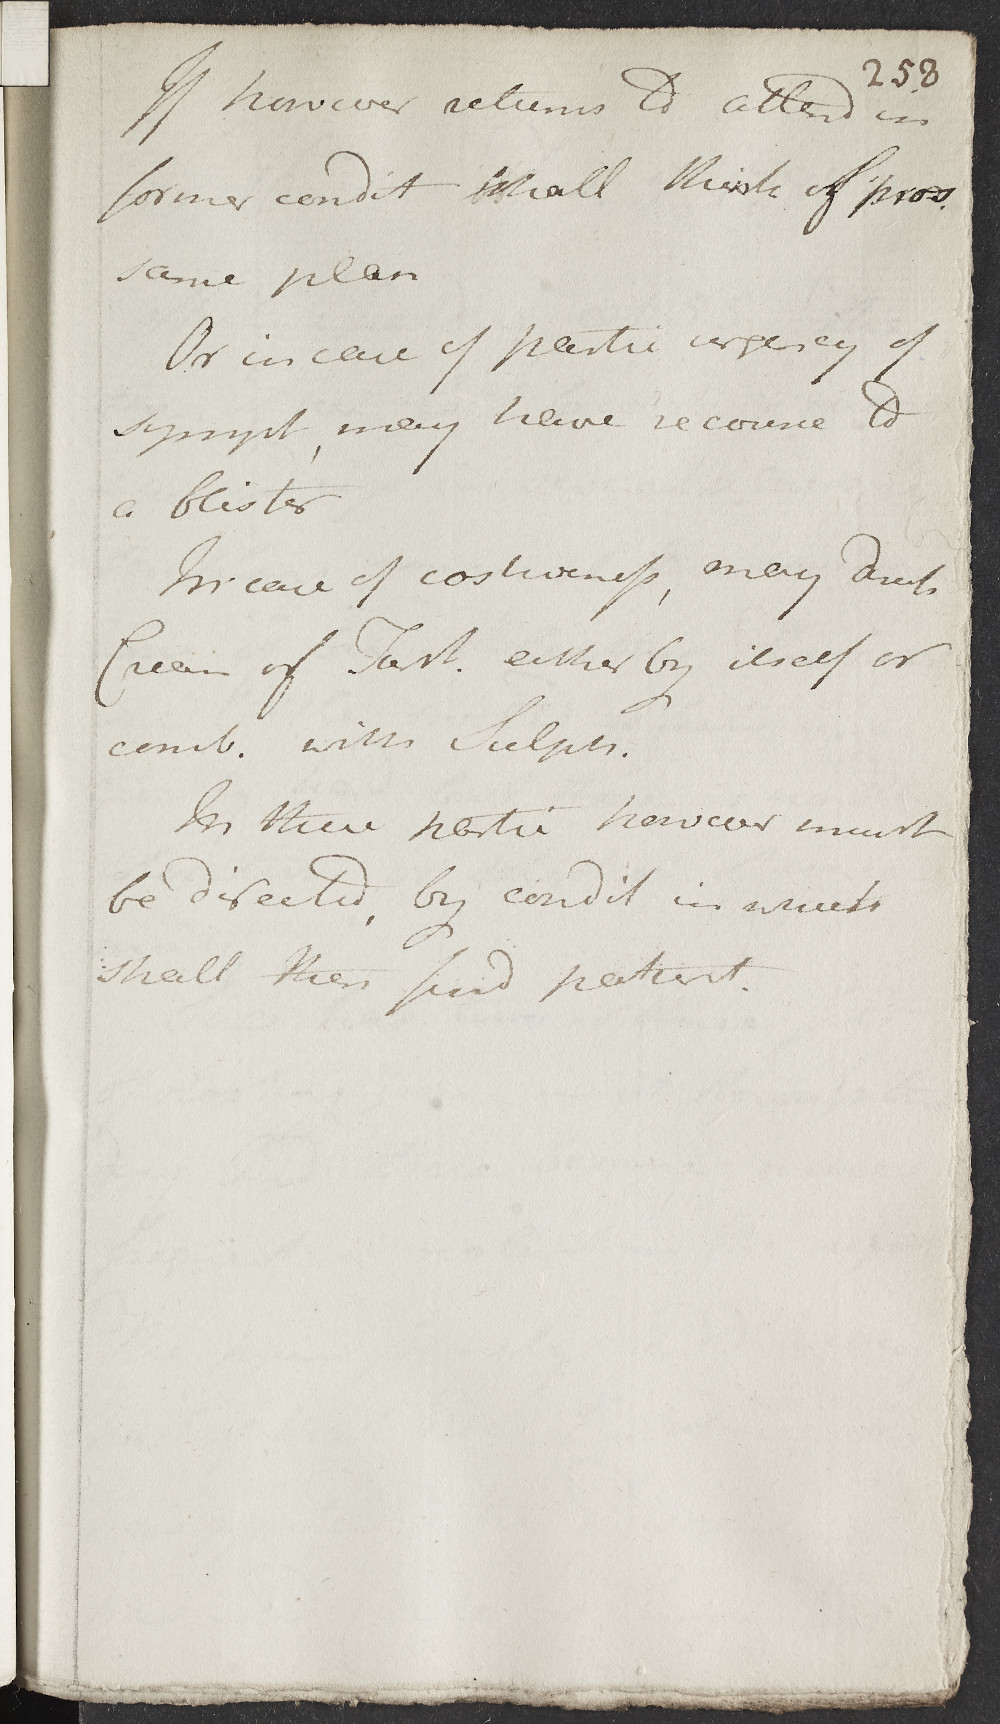 258
If however returns to attend in
former condit shall think of pros.
same plan
Or in case of partic urgency of
sympt, may have recourse to
a blister
In case of costiveness, may
Cream of Tart. either by itself or
comb. with Sulph.
In these partic however must
be directed, by condit in which
shall then find patient.